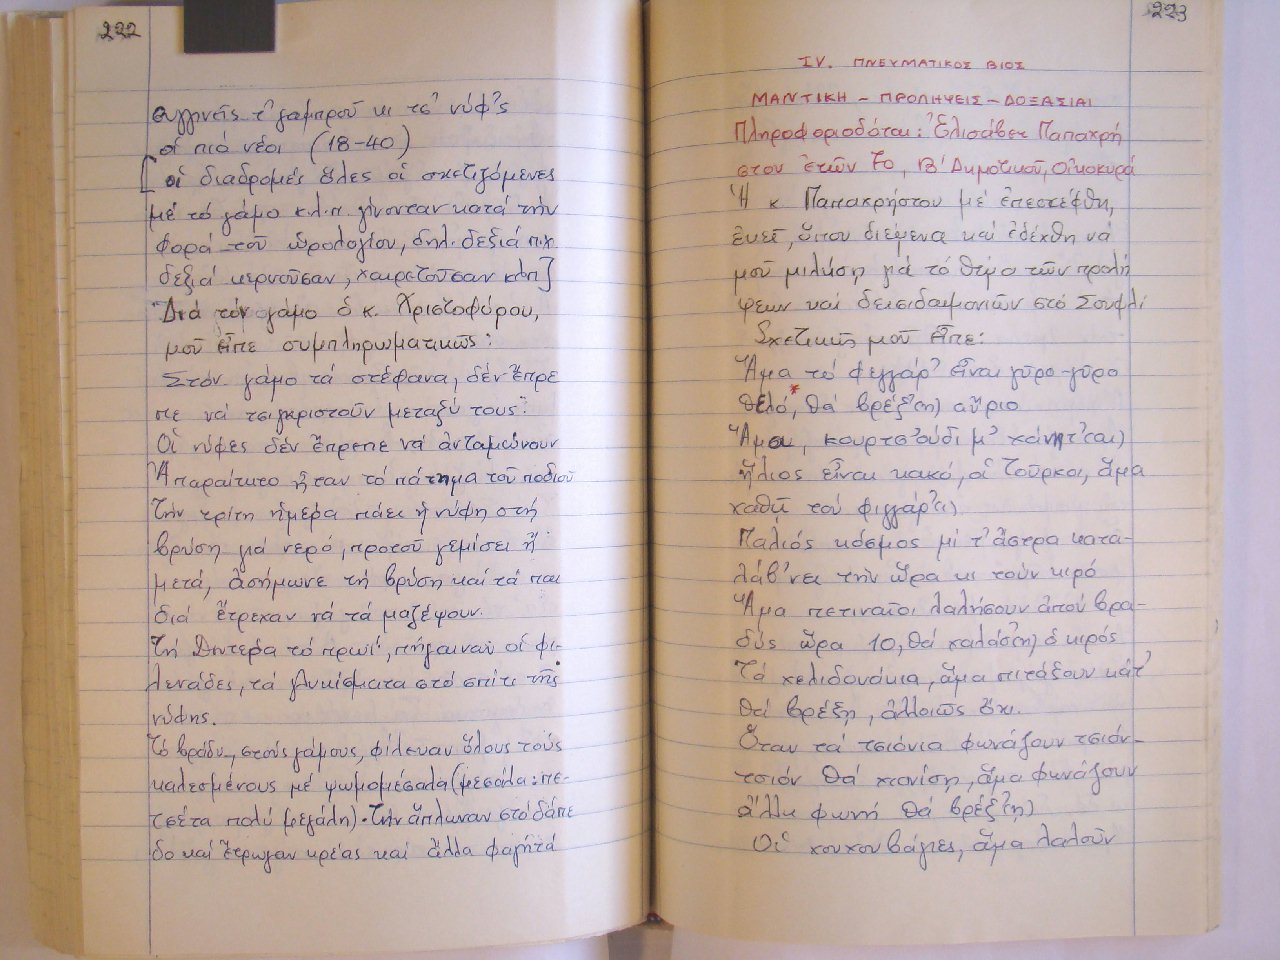 222
συγγινεῖς τ' γαμπροῦ κι τσ' νύφ'ς
οἱ πιό νέοι (18-40)
[οἱ διαδρομές ὅλες οἱ σχετιζόμενες
μέ τό γάμο κ.λ.π. γίνονταν κατά τήν
φορά τοῦ ὡρολογίου, δηλ. δεξιά π.χ.
δεξιά κερνοῦσαν, χαιρετοῦσαν κλπ]
Διά τόν γάμο ὁ κ. Χριστοφόρου,
μοῦ εἶπε συμπληρωματικῶς:
Στόν γάμο τά στέφανα, δέν ἔπρε
πε νά τσιγκριστοῦν μεταξύ τους.
Οἱ νύφες δέν ἔπρεπε νά ἀνταμώνουν
Ἀπαραίτητο ἦταν τό πάτημα τοῦ ποδιοῦ
Τήν τρίτη ἡμέρα πάει ἡ νύφη στή
βρύση γιά νερό, προτοῦ γεμίσει ἤ
μετά, ἀσήμωνε τή βρύση καί τά παι
διά ἔτρεχαν νά τά μαζέψουν.
Τή Δευτέρα τό πρωί, πήγαιναν οἱ φι-
λενάδες, τά γλυκίσματα στό σπίτι τῆς
νύφης.
Τό βράδυ, στούς γάμους, φίλευαν ὅλους τούς
καλεσμένους μέ ψωμομέσαλα (μεσάλα: πε-
τσέτα πολύ μεγάλη). Τήν ἅπλωναν στό δάπε
δο καί ἔτρωγαν κρέας καί ἄλλα φαγητά
223
IV. ΠΝΕΥΜΑΤΙΚΟΣ ΒΙΟΣ
ΜΑΝΤΙΚΗ - ΠΡΟΛΗΨΕΙΣ - ΔΟΞΑΣΙΑΙ
Πληροφοριοδόται: Ἐλισάβετ Παπαχρή
στου ἐτῶν 70, Β' Δημοτικοῦ, Οἰκοκυρά
Ἡ κ. Παπαχρήστου μέ ἐπεσκέφθη,
ἐκεῖ, ὅπου διέμενα καί ἐδέχθη νά
μοῦ μιλήση γιά τό θέμα τῶν προλή
ψεων καί δεισιδαιμονιῶν στό Σουφλί
Σχετικῶς μοῦ εἶπε:
Ἅμα τό φεγγάρ' εἶναι γῦρο-γῦρο
θελό,* θά βρέξ'(η) αὔριο
Ἅμα, κουρτσ'ούδι μ' χάνητ'(αι)
ἥλιος εἶναι κακό, οἱ Τοῦρκοι, ἅμα
χαθῆ τού φιγγάρ'(ι)
Παλιός κόσμος μί τ' ἄστρα κατα-
λάβ'νει τήν ὥρα κι τούν κιρό
Ἅμα πετιναῖοι λαλήσουν ἀπού βρα-
δύς ὥρα 10, θά χαλάσ(η) ὁ κιρός
Τά χελιδονάκια, ἅμα πιτάξουν κάτ'
θά βρέξη, ἀλλοιῶς ὄχι.
Ὅταν τά τσιόνια φωνάζουν τσιόν-
τσιόν θά χιονίση, ἅμα φωνάζουν
ἄλλη φωνή θά βρέξ'(η)
Οἱ κουκουβάγιες, ἅμα λαλοῦν